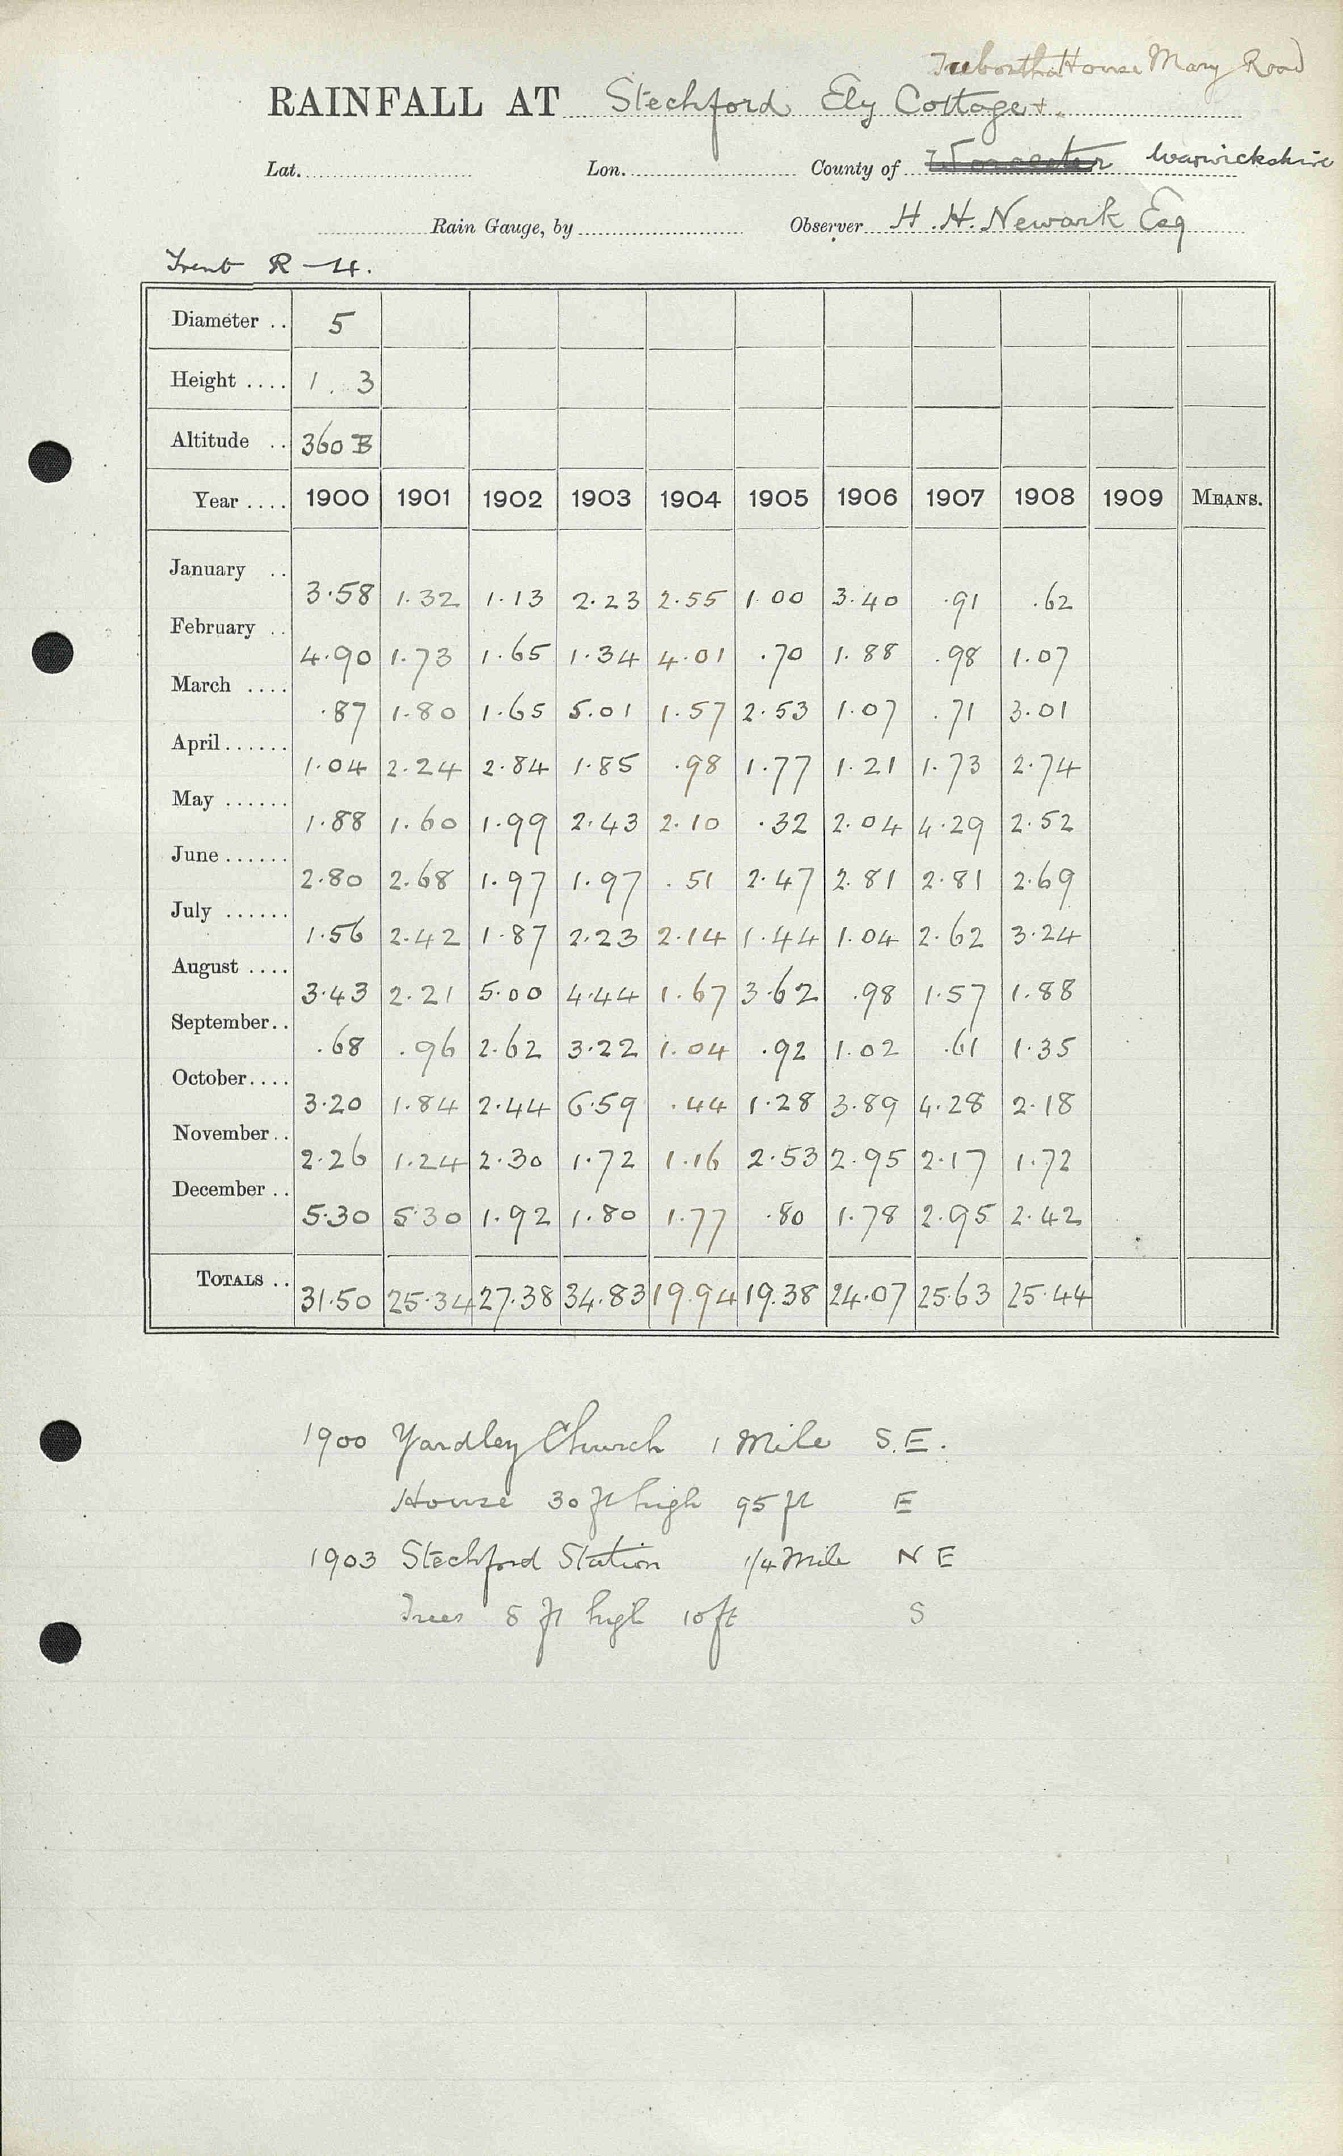 House Mary Road
RAINFALL AT Stechford Ely Cottage +
Lat. Lon. County of Worcester Warwickshire
Rain Gauge, by Observer H. H. Newark Esq
Trent R -4.
Diameter .. 5
Height .... 1. 3
Altitude .. 360 B
Year .... 1900 1901 1902 1903 1904 1905 1906 1907 1908 1909 MEANS.
January .. 3.58 1.32 1.13 2.23 2.55 1.00 3.40 .91 .62
February .. 4.90 1.73 1.65 1.34 4.01 .70 1.88 .98 1.07
March .... .87 1.80 1.65 5.01 1.57 2.53 1.07 .71 3.01
April...... 1.04 2.24 2.84 1.85 .98 1.77 1.21 1.73 2.74
May ...... 1.88 1.60 1.99 2.43 2.10 .32 2.04 4.29 2.52
June...... 2.80 2.68 1.97 1.97 .51 2.47 2.81 2.81 2.69
July ...... 1.56 2.42 1.87 2.23 2.14 1.44 1.04 2.62 3.24
August .... 3.43 2.21 5.00 4.44 1.67 3.62 .98 1.57 1.88
September.. .68 .96 2.62 3.22 1.04 .92 1.02 .61 1.35
October.... 3.20 1.84 2.44 6.59 .44 1.28 3.89 4.28 2.18
November.. 2.26 1.24 2.30 1.72 1.16 2.53 2.95 2.17 1.72
December .. 5.30 5.30 1.92 1.80 1.77 .80 1.78 2.95 2.42
TOTALS .. 31.50 25.34 27.38 34.83 19.94 19.38 24.07 25.63 25.44
1900 Yardley Church 1 Mile S.E.
House 30 ft high 95 ft E
1903 Stechford Station 1/4 Mile N E
Trees 8 ft high 10 ft S